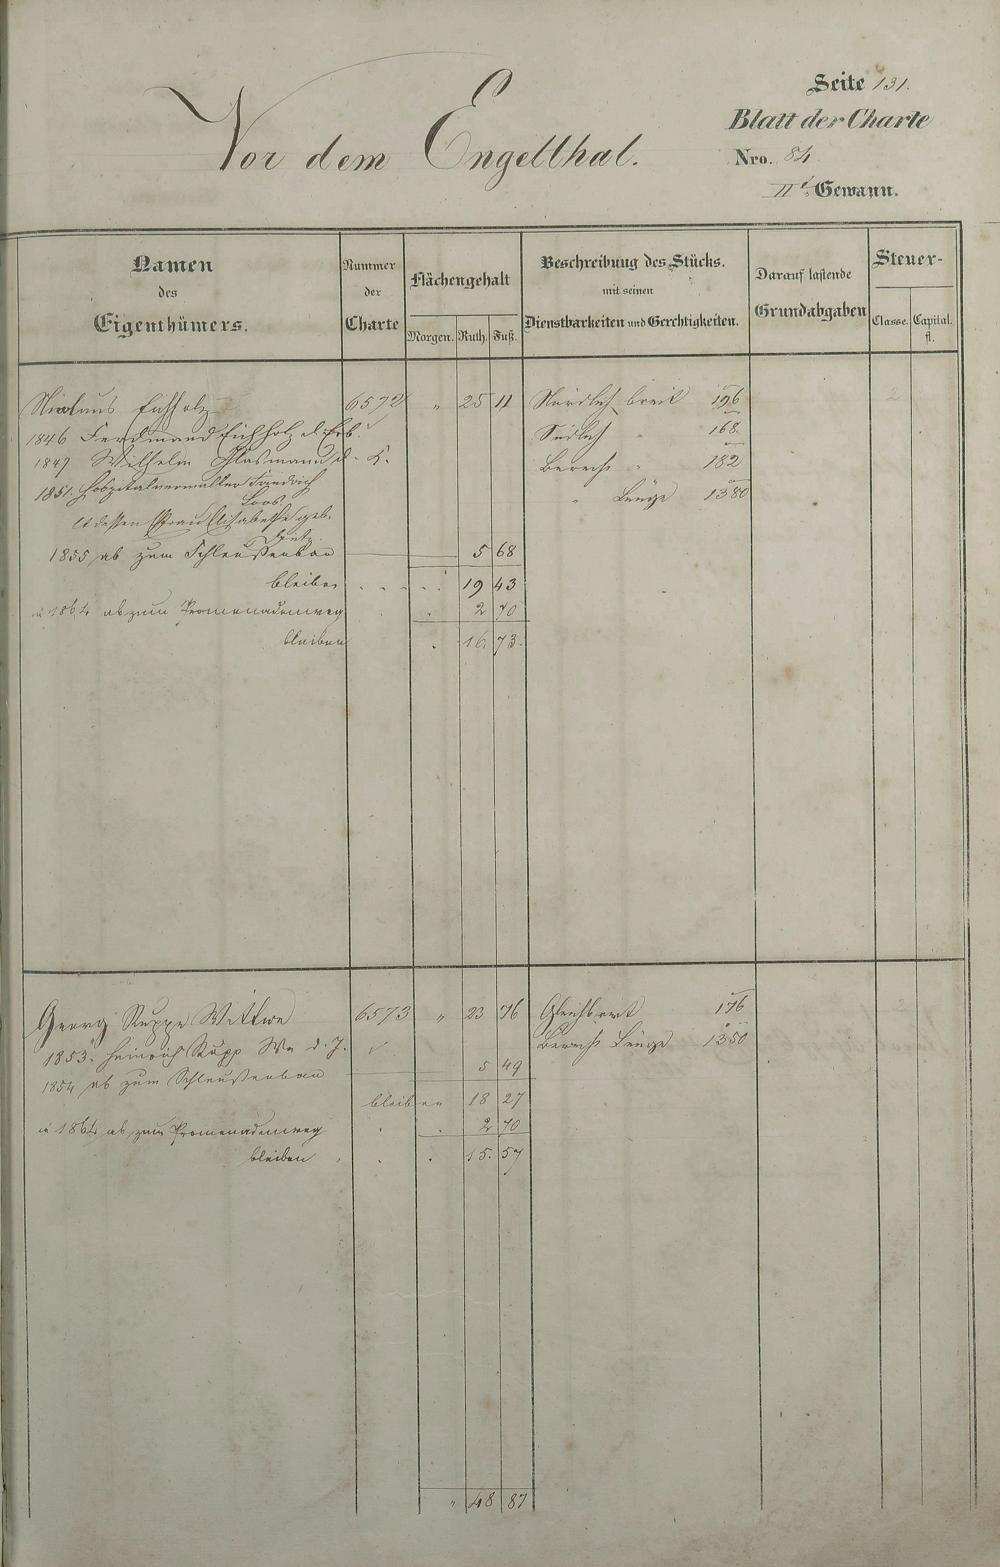 Vor dem Engelthal.
Seite 131.
Blatt der Charte
Nro. 84
IIt. Gewann.
Namen
des
Eigenthümers.
Nummer
der
Charte
Flächengehalt
Morgen. Ruth. Fuß.
Beschreibung des Stücks.
mit seinen
Dienstbarkeiten und Gerechtigkeiten.
Darauf lastende
Grundabgaben
Steuer-
Classe. Capital.
fl.
Nicolaus Eichholz 6572 " 25 11 Nördlich breit 196
1846 Ferdinand Eichholz Südlich " 168
1847 Wilhelm Glasmann Berechn " 182
1851. Hospitalverwalter Friedrich " Länge 1380
Loos
et dessen Frau Elisabethe geb.
1855 ab zum Schleußenbau 5 68
bleiben 19 43
1864 ab zum Promenadenweg 2 70
bleiben 16. 73.
Georg Rupps Wittwe 6573 " 23 76 Gleichbreit 176
1853. Heinrich Rupp We d. J. Berechn Länge 1350
5 49
1854 ab zum Schleußenbau
bleiben 18 27
1864 ab zum Promenadenweg 2 70
bleiben 15. 57
" 48 87